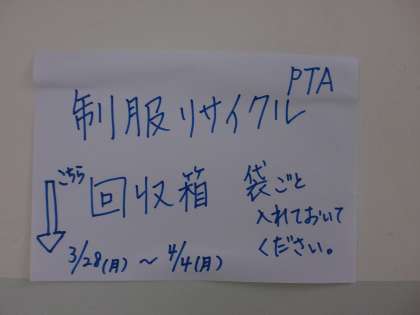 PTA
制服リサイクル
こちら
回収箱
袋ごと
入れておいて
ください。
3/28(月) ～ 4/4(月)